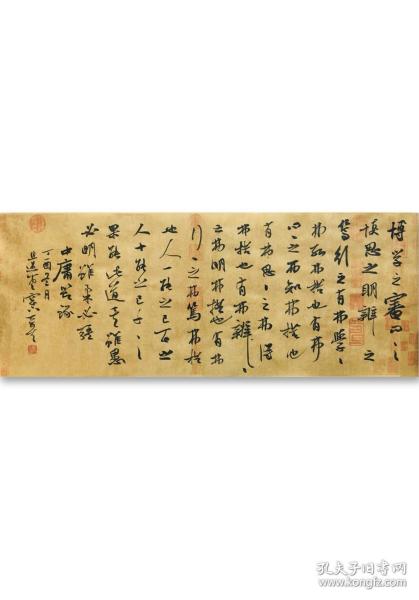 博学之審问之
慎思之明辨之
篤行之有弗學〻
弗能弗措也有弗
问之弗知弗措也
有弗思〻之弗得
弗措也有弗辨〻
之弗明弗措也有弗
行〻之弗篤弗措
也人一能之己百之
人十能之己千之
果能此道矣雖愚
必明雖柔必强
中庸
丁酉
孔夫子旧书网